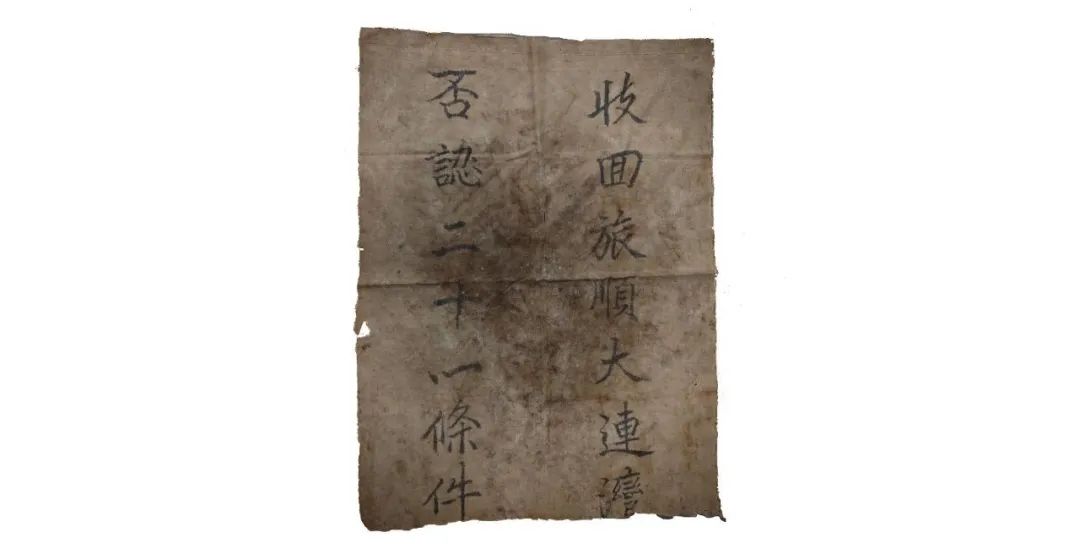 收回旅順大連灣
否認二十一條件